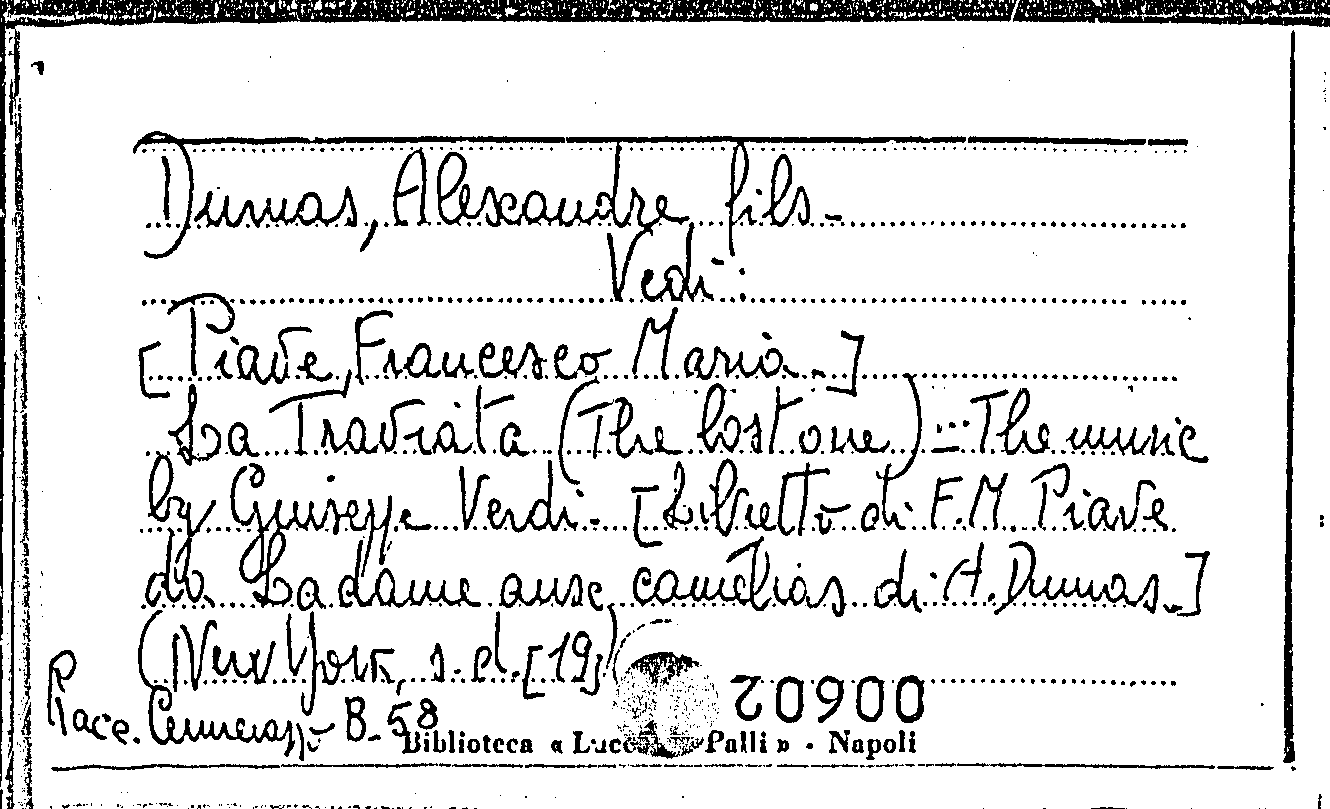 Dumas, Alexandre, fils.-
Vedi:
[Piave, Francesco Maria.-]
La Traviata (The lost one) ... The music
by Giuseppe Verdi.- [Libretto di F.M. Piave
da La dame aux camélias di A. Dumas.]
(New York, s.d. [19])
Racc. B-58
20600
Biblioteca « Lucchesi Palli » - Napoli